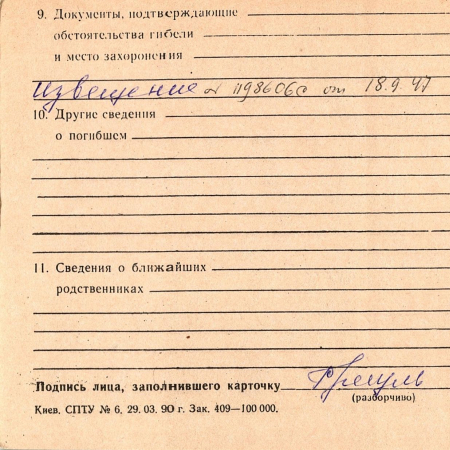 9. Документы, подтверждающие
обстоятельства гибели
и место захоронения
Извещение № 1198606с от 18.9.47
10. Другие сведения
о погибшем
11. Сведения о ближайших
родственниках
Подпись лица, заполнившего карточку
(разборчиво)
Киев. СПТУ № 6, 29. 03. 90 г. Зак. 409—100 000.